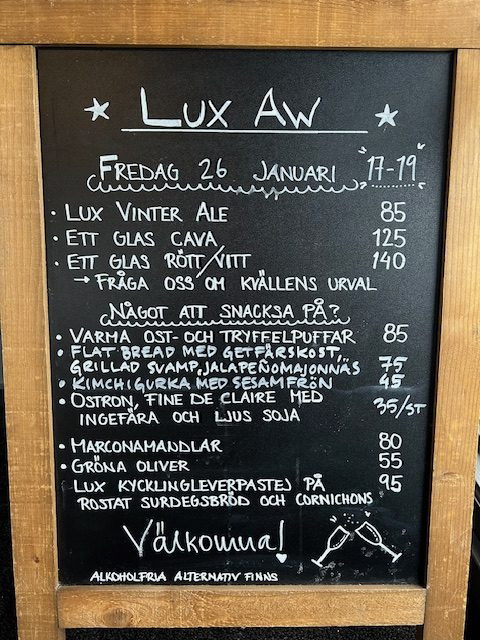 LUX AW
FREDAG 26 JANUARI "17-19"
· LUX VINTER ALE 85
· ETT GLAS CAVA 125
· ETT GLAS RÖTT/VITT 140
→ FRÅGA OSS OM KVÄLLENS URVAL
NÅGOT ATT SNACKSA PÅ?
· VARMA OST- OCH TRYFFELPUFFAR 85
· FLAT BREAD MED GETFÄRSKOST,
GRILLAD SVAMP, JALAPEÑOMAJONNÄS 75
· KIMCHIGURKA MED SESAMFRÖN 45
· OSTRON, FINE DE CLAIRE MED 35/ST
INGEFÄRA OCH LJUS SOJA
· MARCONAMANDLAR 80
· GRÖNA OLIVER 55
LUX KYCKLINGLEVERPASTEJ PÅ 95
ROSTAT SURDEGSBRÖD OCH CORNICHONS
Välkomna!
ALKOHOLFRIA ALTERNATIV FINNS